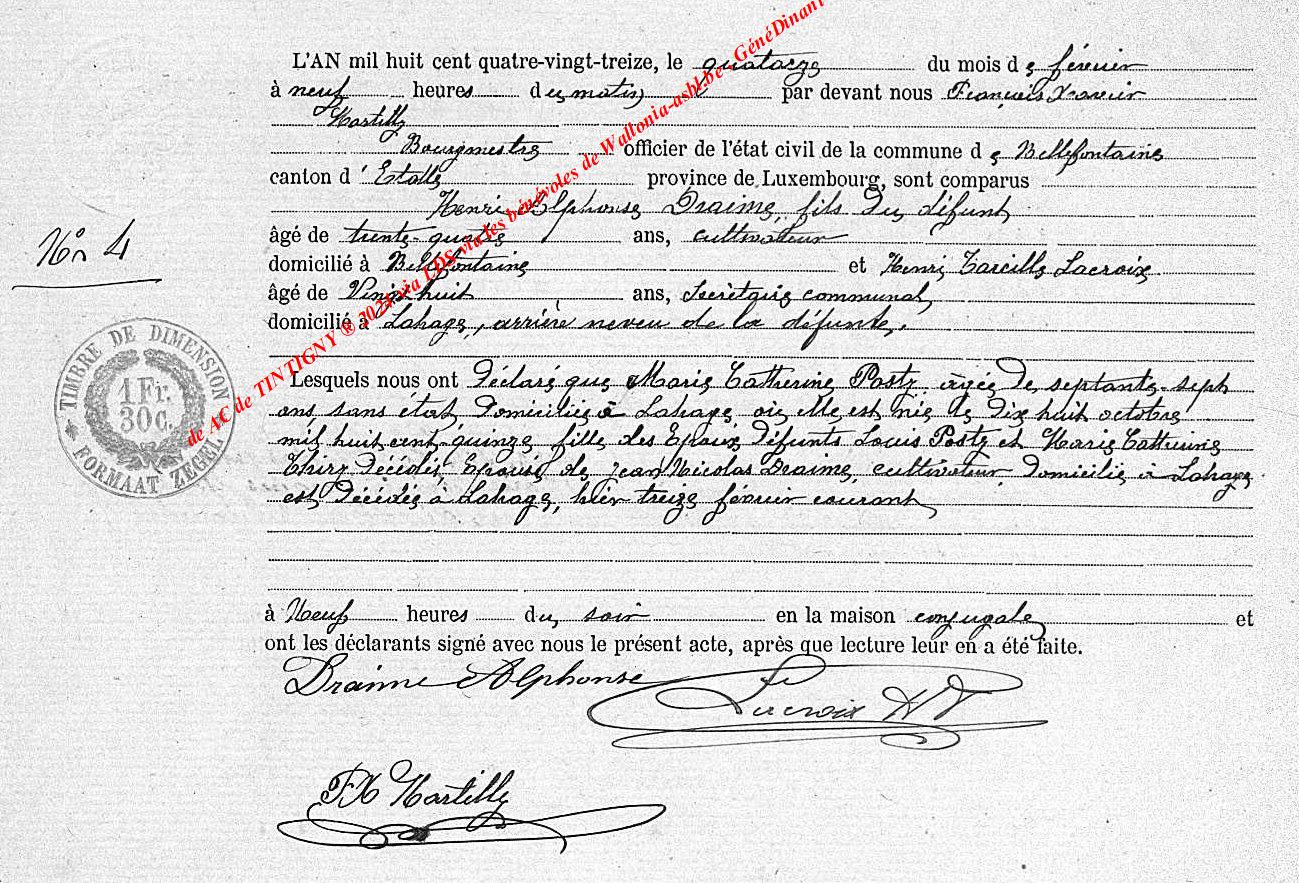 L'AN mil huit cent quatre-vingt-treize, le quatorze du mois de février
à neuf heures du matin par devant nous François Xavier
Martilly
Bourgmestre officier de l'état civil de la commune de Bellefontaine
canton d'Etalle province de Luxembourg, sont comparus
Henri Alphonse Draime, fils du défunt
âgé de trente-quatre ans, cultivateur
domicilié à Bellefontaine et Henri Lacroix
N° 4
âgé de Vingt huit ans, Secrétaire communal,
domicilié à Lahage, arrière neveu de la défunte.
Lesquels nous ont déclaré que Marie Catherine Postz âgée de septante-sept
ans, sans état domiciliée à Lahage où elle est née le dix huit octobre
mil huit cent quinze fille des Epoux défunts Louis Postz et Marie Catherine
Thiry décédés, Epouse de Jean Nicolas Draime, cultivateur domicilié à Lahage
est décédée à Lahage, hier treize février courant
à Neuf heures du soir en la maison conjugale et
ont les déclarants signé avec nous le présent acte, après que lecture leur en a été faite.
Draime Alphonse Lacroix
FX Martilly
TIMBRE DE DIMENSION
1 Fr.
30c.
FORMAAT ZEGEL
de AC de TINTIGNY ® 2024 via FDS via les bénévoles de Wallonia-asbl.be - GénéDinant